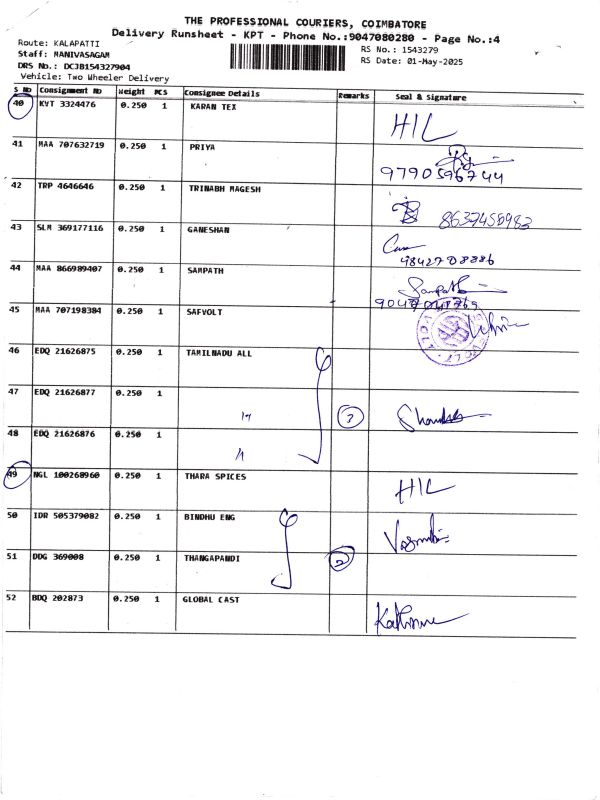 THE PROFESSIONAL COURIERS, COIMBATORE
Delivery Runsheet - KPT - Phone No.:9047080280 - Page No.:4
Route: KALAPATTI
RS No.: 1543279
Staff: MANIVASAGAM
RS Date: 01-May-2025
DRS No.: DCJB154327904
Vehicle: Two Wheeler Delivery
S No Consignment No Weight PCS Consignee Details Remarks Seal & Signature
40 KVT 3324476 0.250 1 KARAN TEX HIL
41 MAA 707632719 0.250 1 PRIYA
9790596744
42 TRP 4646646 0.250 1 TRINABH MAGESH
8637450983
43 SLM 369177116 0.250 1 GANESHAN
9842708886
44 MAA 866989407 0.250 1 SAMPATH Sampath
45 MAA 707198384 0.250 1 SAFVOLT
46 EDQ 21626875 0.250 1 TAMILNADU ALL
47 EDQ 21626877 0.250 1
48 EDQ 21626876 0.250 1
49 NGL 100268960 0.250 1 THARA SPICES HIL
50 IDR 505379082 0.250 1 BINDHU ENG
51 DDG 369008 0.250 1 THANGAPANDI 2
52 BDQ 202873 0.250 1 GLOBAL CAST